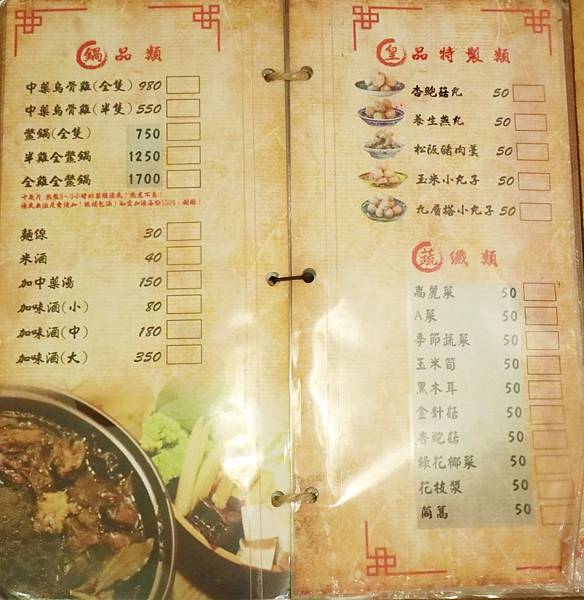 鍋品類
中藥烏骨雞(全隻) 980
中藥烏骨雞(半隻) 550
鱉鍋(全隻) 750
半雞全鱉鍋 1250
全雞全鱉鍋 1700
麵線 30
米酒 40
加中藥湯 150
加味酒(小) 80
加味酒(中) 180
加味酒(大) 350
皇品特製類
杏鮑菇丸 50
養生燕丸 50
松阪豬肉羹 50
玉米小丸子 50
九層塔小丸子 50
蔬纖類
高麗菜 50
A菜 50
季節蔬菜 50
玉米筍 50
黑木耳 50
金針菇 50
杏鮑菇 50
綠花椰菜 50
花枝漿 50
茼蒿 50